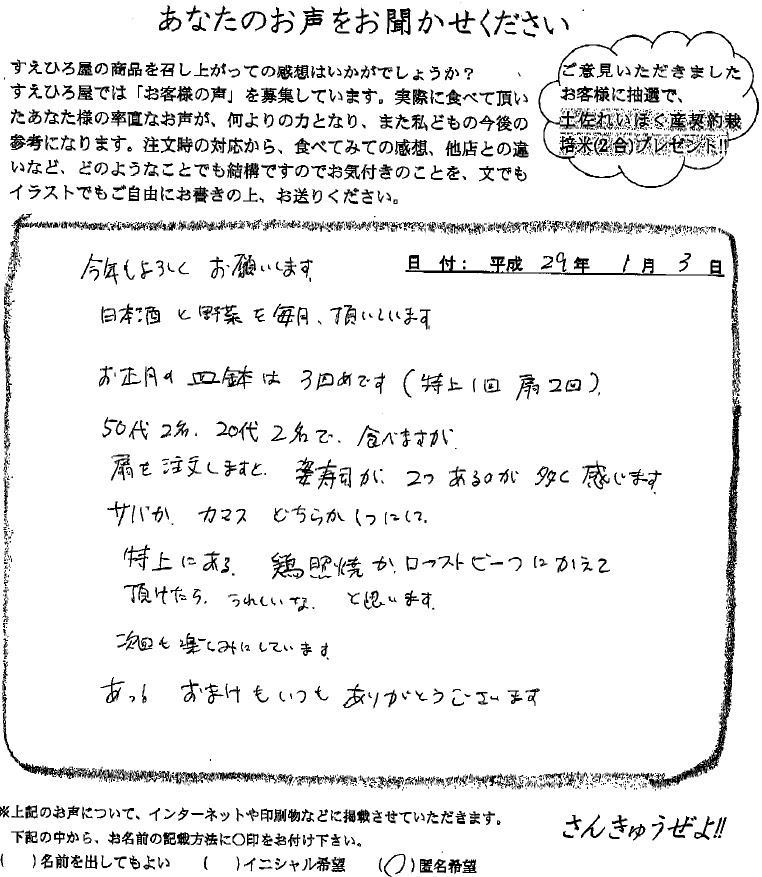 あなたのお声をお聞かせください
すえひろ屋の商品を召し上がっての感想はいかがでしょうか？
すえひろ屋では「お客様の声」を募集しています。実際に食べて頂い
たあなた様の率直なお声が、何よりの力となり、また私どもの今後の
参考になります。注文時の対応から、食べてみての感想、他店との違
いなど、どのようなことでも結構ですのでお気付きのことを、文でも
イラストでもご自由にお書きの上、お送りください。
ご意見いただきました
お客様に抽選で、
土佐れいほく産契約栽
培米(2合)プレゼント!!
日付：平成 29年 1月 3日
今年もよろしく お願いします
日本酒と野菜を毎月、頂いています
お正月の皿鉢は 3回めです(特上1回 扇2回)
50代2名、20代2名で、食べますが
扇を注文しますと、姿寿司が、2つあるのが多く感じます
サバか カマス どちらか1つにして、
特上にある、鶏照焼か、ローストビーフにかえて
頂けたら、うれしいな、と思います
次回も楽しみにしています
あっ! おまけもいつもありがとうございます
※上記のお声について、インターネットや印刷物などに掲載させていただきます。
下記の中から、お名前の記載方法に〇印をお付け下さい。
( )名前を出してもよい ( )イニシャル希望 (〇)匿名希望
さんきゅうぜよ!!